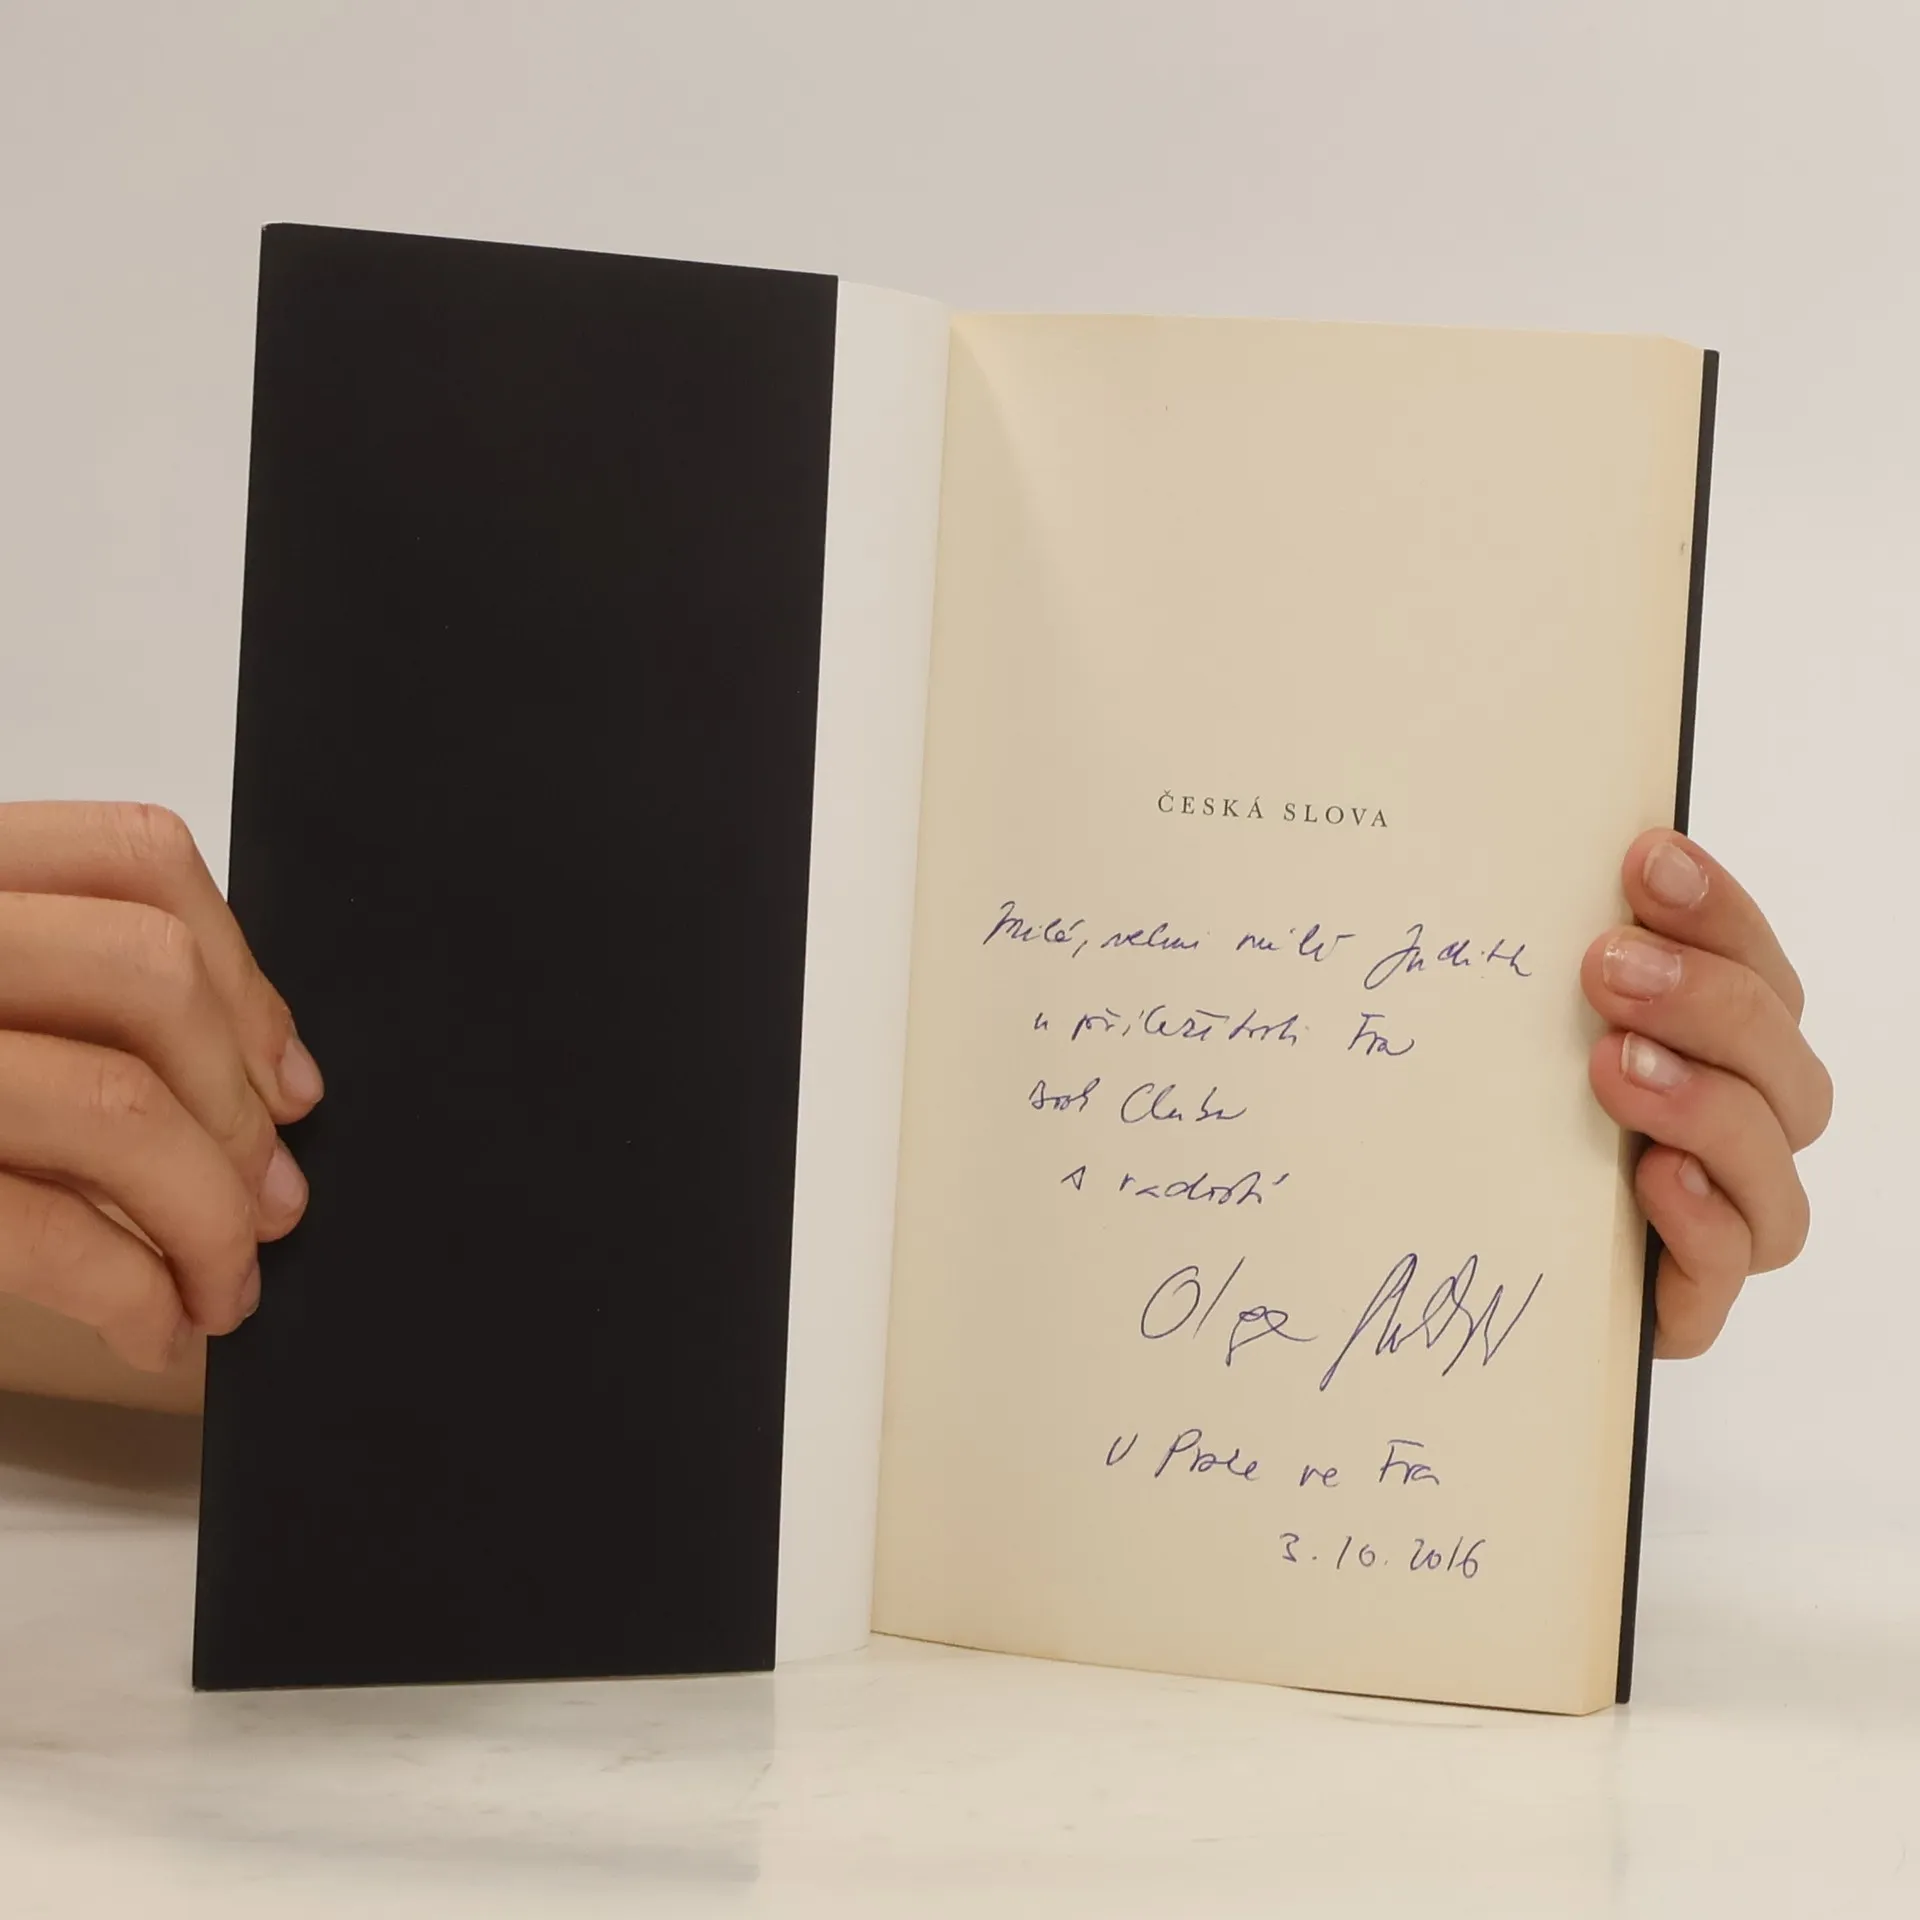 ČESKÁ SLOVA
Milá, velmi milá Judith
u příležitosti Fra
book Clubu
s radostí
Olga
V Praze ve Fra
3.10.2016